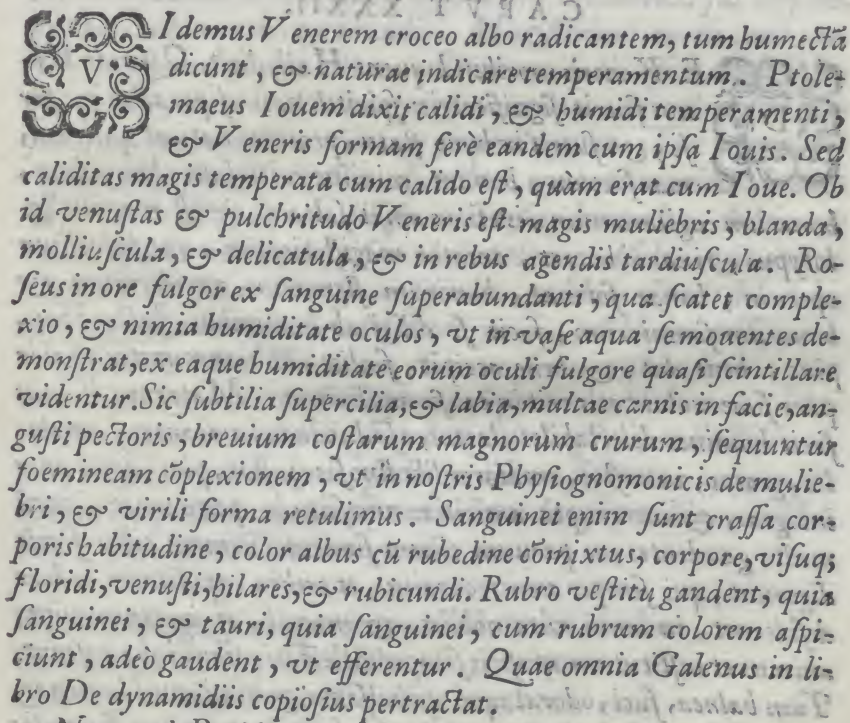 VIdemus Venerem croceo albo radicantem, tum humectã
dicunt, & naturae indicare temperamentum. Ptole-
maeus Iouem dixit calidi, & humidi temperamenti,
& Veneris formam ferè eandem cum ipſa Iouis. Sed
caliditas magis temperata cum calido eſt, quàm erat cum Ioue. Ob
id venuſtas & pulchritudo Veneris eſt magis muliebris, blanda,
molliuſcula, & delicatula, & in rebus agendis tardiuſcula. Ro-
ſeus in ore fulgor ex ſanguine ſuperabundanti, qua ſcatet comple-
xio, & nimia humiditate oculos, vt in vaſe aqua ſe mouentes de-
monſtrat, ex eaque humiditate eorum oculi fulgore quaſi ſcintillare
videntur. Sic ſubtilia ſupercilia, & labia, multae carnis in facie, an-
guſti pectoris, breuium coſtarum magnorum crurum, ſequuntur
foemineam cõplexionem, vt in noſtris Phyſiognomonicis de mulie-
bri, & virili forma retulimus. Sanguinei enim ſunt craſſa cor-
poris habitudine, color albus cũ rubedine cõmixtus, corpore, viſuq;
floridi, venuſti, hilares, & rubicundi. Rubro veſtitu gaudent, quia
ſanguinei, & tauri, quia ſanguinei, cum rubrum colorem aſpi-
ciunt, adeò gaudent, vt efferentur. Quae omnia Galenus in li-
bro De dynamidiis copioſius pertractat.